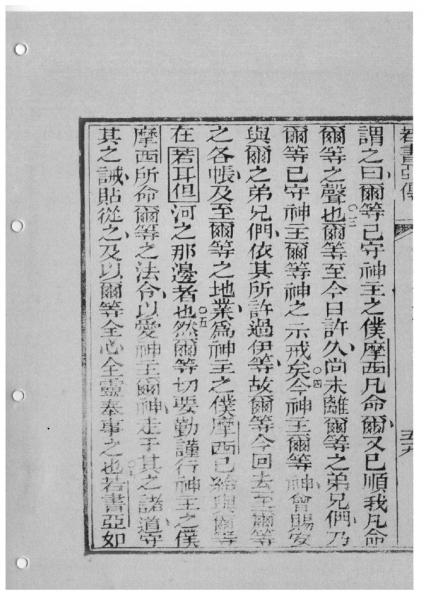 若書亞傳
五十九
謂之曰爾等已守神主之僕摩西凡命爾又已順我凡命
爾等之聲也○三爾等至今日許久尚未離爾等之弟兄們乃
爾等已守神主爾等神之示戒矣○四今神主爾等神曾賜安
與爾之弟兄們依其所許過伊等故爾等今回去至爾等
之各帳及至爾等之地業為神主之僕摩西已給與爾等
在若耳但河之那邊者也○五然爾等切要勤謹行神主之僕
摩西所命爾等之法令以愛神主爾神走于其之諸道守
其之誡貼從之及以爾等全心全靈奉事之也若書亞如